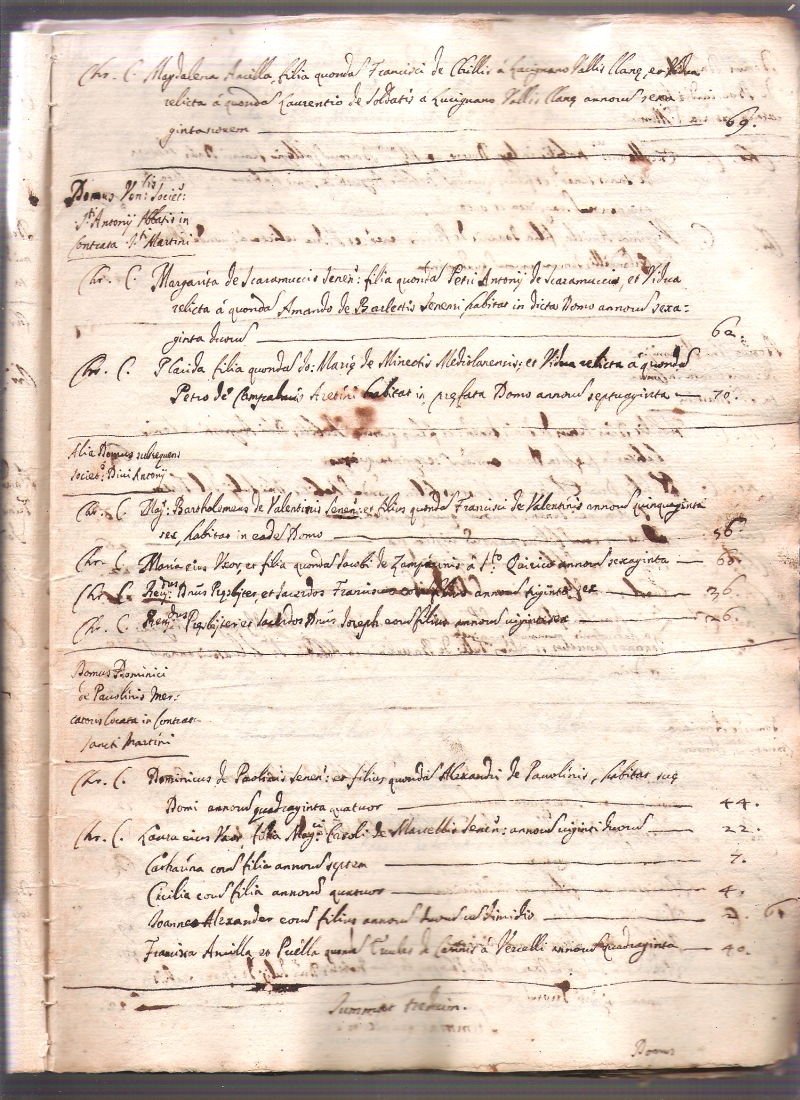 Chr. C. Magdalena Ancilla filia quondã Francisci de á Lucignano Vallis Clanę, et Vidua
relicta á quondã Laurentio de Soldatis á Lucignano Vallis Clanę annorũ sexa
gintanovem — 69.
Domus Ven: Societ:
Sti Antonij Abbatis in
Contrata Sti Martini
Chr. C. Margarita de Scaramuccis Senen: filia quondã Petri Antonij de Scaramuccis, et Vidua
relicta á quondã Amando de Barlettis Senensi, habitat in dicta Domo annorũ sexa:
ginta duorũ — 62.
Chr. C. Placida filia quondã do: Marię de Minectis Mediolanensis: et Vidua relicta á quondã
Petro de Aretini habitat in pręfata Domo annorũ septuaginta — 70.
Alia Domus subsequens
Societ: Divi Antonij
Chr. C. Mag: Bartholomeus de Valentinis Senen: et filius quondã Francisci de Valentinis annorũ quinquaginta
sex, habitat in eadẽ Domo — 56
Chr. C. Maria eius Uxor, et filia quondã Iacobi de á Sto Quirico annorũ sexaginta — 60.
Chr. C. Revdus Dnus Presbiter, et Sacerdos Franciscus eorũ filius annorũ triginta sex — 36.
Chr. C. Revdus Presbiter et Sacerdos Dnus Ioseph eorũ filius annorũ viginti sex — 26.
Domus Dominici
de Pavolinis Mer:
catoris locata in Contrat:
Sancti Martini
Chr. C. Dominicus de Paolinis Senen: et filius quondã Alexandri de Pavolinis, habitat suę
Domi annorũ quadraginta quatuor — 44.
Chr. C. Laura eius Uxor, filia Magci Caroli de Marcellis Senen: annorũ viginti duorũ — 22.
Catharina eorũ filia annorũ septem — 7.
Cicilia eorũ filia annorũ quatuor — 4.
Ioannes Alexander eorũ filius annorũ duorũ cũ dimidio — 2.
Francisca Ancilla et Puella quondã de á Vercelli annorũ Quadraginta — 40.
Domus